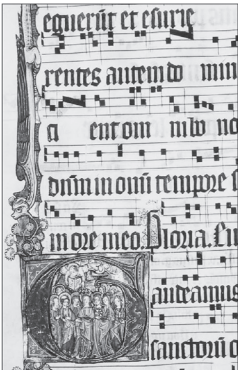 eguerūt et esurie
rentes autem do min
ent om ni bo no
dn̄m in omni tempore
in ore meo. Gloria.
Gaudeamus
sanctorū o